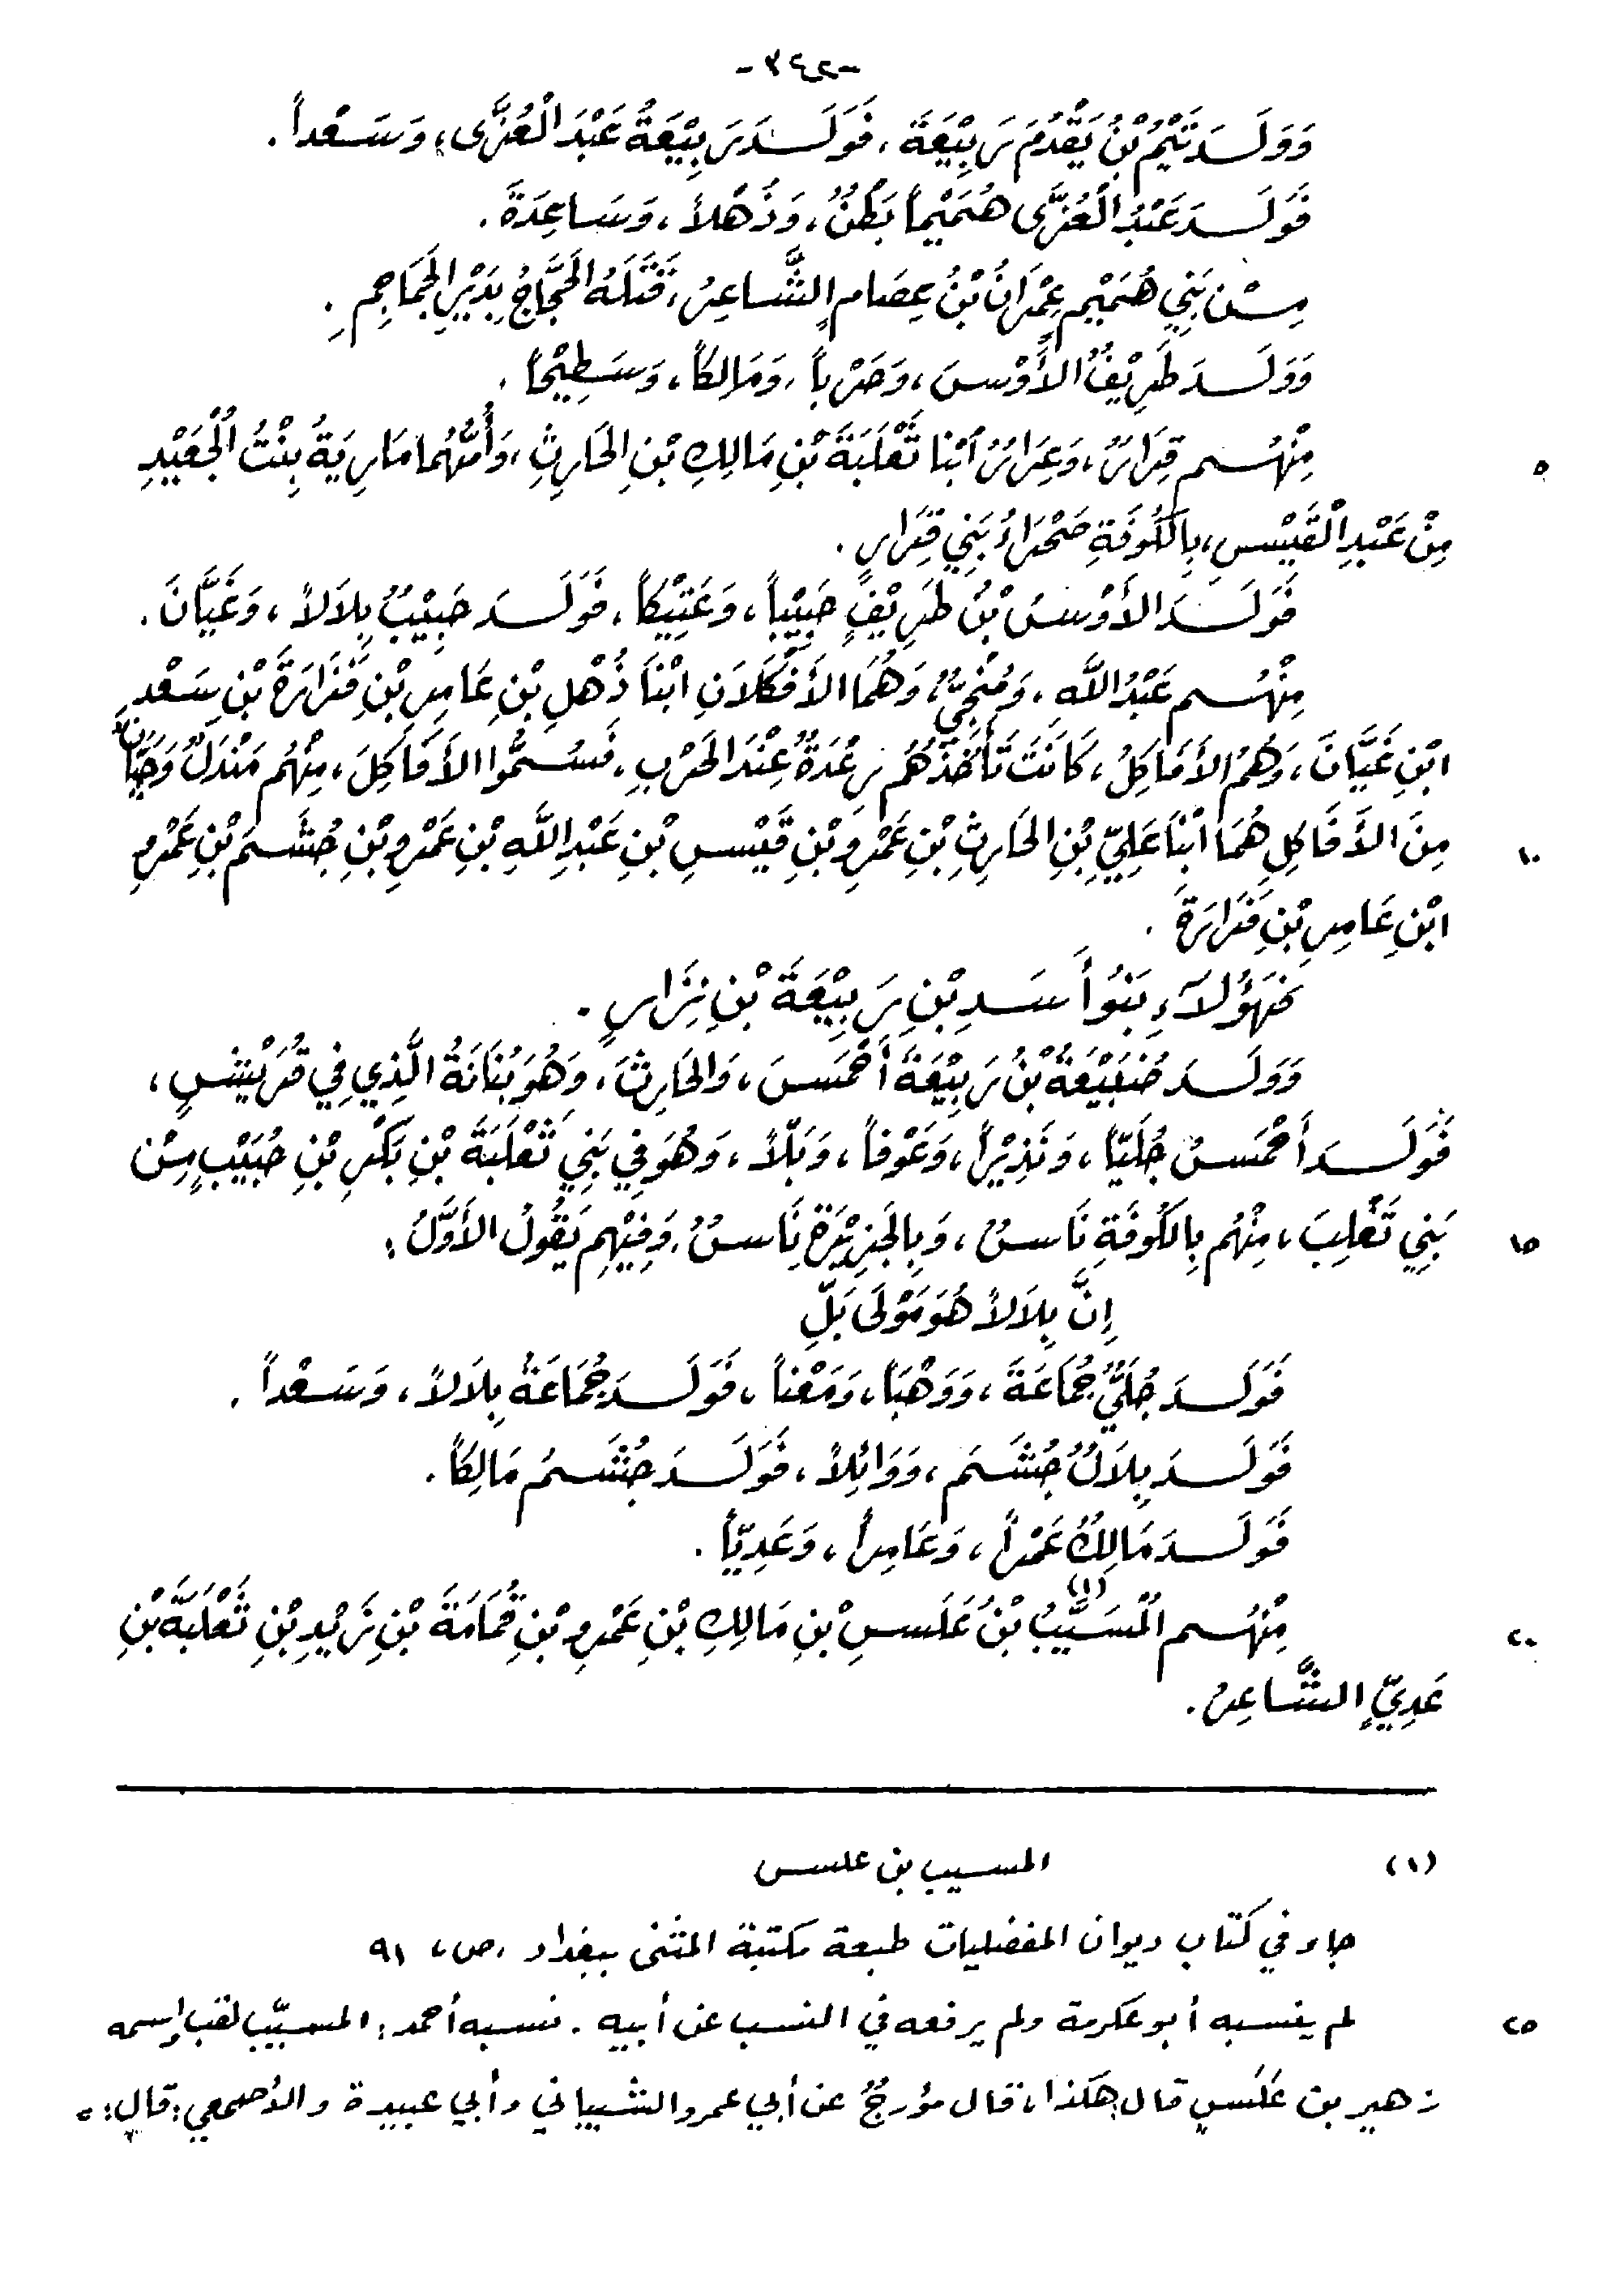 -٣٤٢-
وَوَلَدَ تَيْمُ بْنُ يَقْدُمَ رَبِيْعَةَ، فَوَلَدَ رَبِيْعَةُ عَبْدَ الْعُزَّى، وَسَعْداً.
فَوَلَدَ عَبْدُ الْعُزَّى هُمَيْماً بَطْنٌ، وَذُهْلاً، وَسَاعِدَةَ.
مِنْ بَنِي هُمَيْمٍ عِمْرَانُ بْنُ عِصَامٍ الشَّاعِرُ، قَتَلَهُ الحَجَّاجُ بِدَيْرِ الجَمَاجِمِ.
وَوَلَدَ طَرِيْفٌ الأَوْسَ، وَحَرْباً، وَمَالِكاً، وَسَطِيْحاً.
٥ مِنْهُم قِرَارٌ، وَعِرَارٌ ابْنَا ثَعْلَبَةَ بْنِ مَالِكِ بْنِ الحَارِثِ، وَأُمُّهُما مَارِيَةُ بِنْتُ الْجُعَيْدِ
مِنْ عَبْدِ الْقَيْسِ، بِالكُوفَةِ صَحْرَاءُ بَنِي قِرَارٍ.
فَوَلَدَ الأَوْسُ بْنُ طَرِيْفٍ حَبِيْباً، وَعَتِيْكاً، فَوَلَدَ حَبِيْبٌ بِلاَلاً، وَغَيَّانَ.
مِنْهُم عَبْدُ اللَّه، وَمُنْجِيٌّ، وَهُمَا الأَفْكَلاَنِ ابْنَا ذُهْلِ بْنِ عَامِرِ بْنِ فَزَارَةَ بْنِ سَعْدِ
ابْنِ غَيَّانَ، وَهُمُ الأَفَاكِلُ، كَانَتْ تَأْخُذُهُم رِعْدَةٌ عِنْدَ الحَرْبِ، فَسُمُّوا الأَفَاكِلَ، مِنْهُم مَنْدَلٌ وَحَبَّانُ
١٠ مِنَ الأَفَاكِلِ هُمَا ابْنَا عَلِيِّ بْنِ الحَارِثِ بْنِ عَمْرِو بْنِ قَيْسِ بْنِ عَبْدِ اللَّهِ بْنِ عَمْرِو بْنِ جُشَمَ بْنِ عَمْرِو
ابْنِ عَامِرِ بْنِ فَزَارَةَ.
فَهَؤُلاَءِ بَنُو أَسَدِ بْنِ رَبِيْعَةَ بْنِ نِزَارٍ.
وَوَلَدَ ضُبَيْعَةُ بْنُ رَبِيْعَةَ أَحْمَسَ، وَالحَارِثَ، وَهُوَ بُنَانَةُ الَّذِي فِي قُرَيْشٍ،
فَوَلَدَ أَحْمَسُ جُلَيّاً، وَنَذِيْراً، وَعَوْفاً، وَبَلّاً، وَهُوَ فِي بَنِي ثَعْلَبَةَ بْنِ بَكْرِ بْنِ حُبَيْبٍ مِنْ
١٥ بَنِي تَغْلِبَ، مِنْهُم بِالكُوفَةِ نَاسٌ، وَبِالجَزِيْرَةِ نَاسٌ، وَفِيْهِم يَقُولُ الأَوَّلُ:
إِنَّ بِلاَلاً هُوَ مَوْلَى بَلِّ
فَوَلَدَ جُلَيٌّ جُمَاعَةَ، وَوَهْباً، وَمَعْناً، فَوَلَدَ جُمَاعَةُ بِلاَلاً، وَسَعْداً.
فَوَلَدَ بِلاَلٌ جُشَمَ، وَوَائِلاً، فَوَلَدَ جُشَمُ مَالِكاً.
فَوَلَدَ مَالِكٌ عَمْراً، وَعَامِراً، وَعَدِيّاً.
٢٠ مِنْهُم الْمُسَيَّبُ(١) بْنُ عَلَسِ بْنِ مَالِكِ بْنِ عَمْرِو بْنِ قُمَامَةَ بْنِ زَيْدِ بْنِ ثَعْلَبَةَ بْنِ
عَدِيٍّ الشَّاعِرُ.
(١) المسيب بن علس
جاء في كتاب ديوان المفضليات طبعة مكتبة المثنى ببغداد، ص، ٩١
٢٥ لم ينسبه أبو عكرمة ولم يرفعه في النسب عن أبيه. نسبه أحمد: المسيَّب لقب واسمه
زهير بن عَلَسٍ قال هكذا، قال مؤرجٌ عن أبي عمرو الشيباني وأبي عبيدة والأصمعي: قال: =